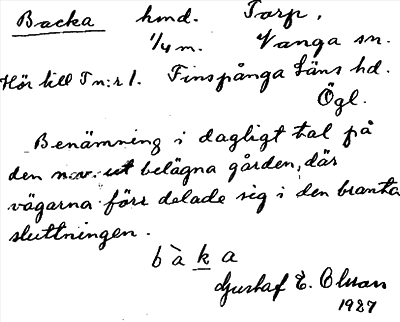 Backa hmd. Torp,
1/4 m. Vånga sn.
Hör till Tn:r 1. Finspånga Läns hd.
Ögl.
Benämning i dagligt tal på
den nov. ut belägna gården, där
vägarna förr delade sig i den branta
sluttningen.
b à k a
Gustaf E. Olsson
1927